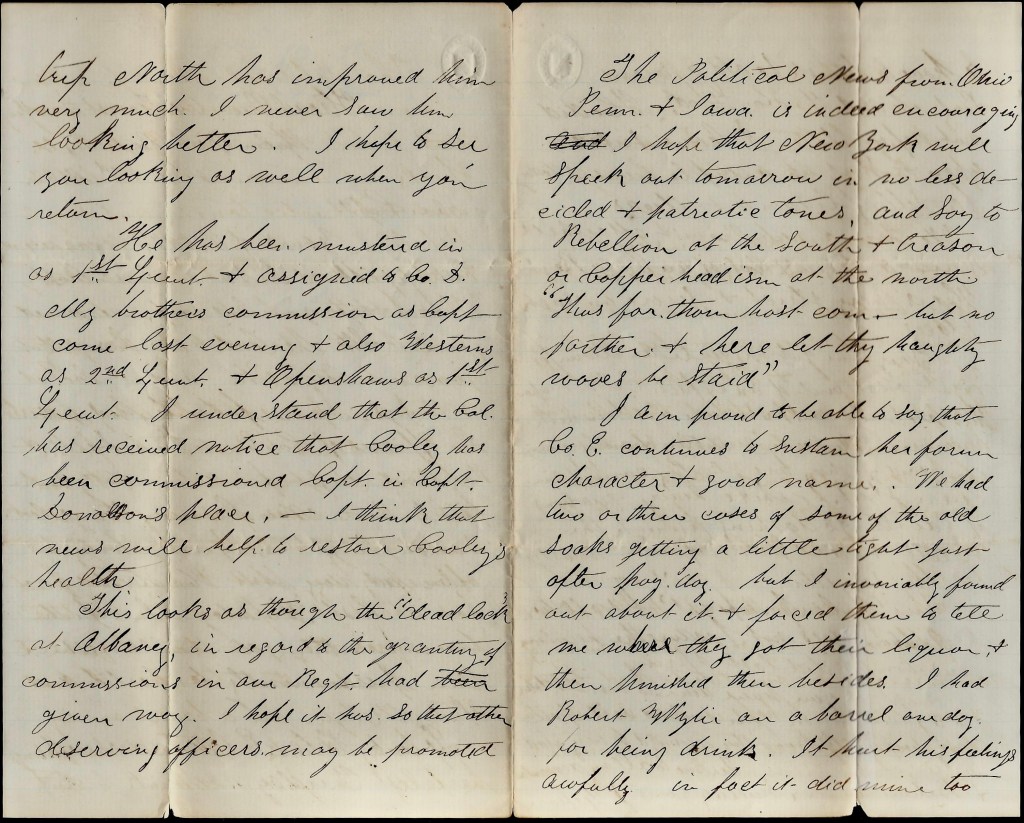 trip North has improved him
very much. I never saw him
looking better. I hope to see
you looking as well when you
return.
"He has been mustered in
as 1st Lieut. & assigned to Co. D.
My brothers commission as Capt
come last evening & also Westerns
as 2nd Lieut. & Openshaws as 1st
Lieut. I understand that the Col.
has received notice that Cooley has
been commissioned Capt. in Capt.
Donaldson's place. — I think that
news will help to restore Cooley's
health
This looks as though the "dead lock"
at Albany, in regard to the granting of
commissions in our Regt. had been
given way. I hope it has. so that other
deserving officers may be promoted
The Political News from Ohio
Penn. & Iowa. is indeed encouraging
and I hope that New York will
speek out tomorrow in no less de-
cided & patreotic tones, and say to
Rebellion at the South & treason
or Copper head ism at the north
"Thus far thou hast com - but no
farther & here let thy haughty
waves be staid"
I am proud to be able to say that
Co. E. continues to sustain her form
character & good name. We had
two or three cases of some of the old
soaks getting a little tight just
after pay day but I invariably found
out about it & forced them to tell
me where they got their liquor, &
then punished them besides. I had
Robert Wylie on a barrel one day
for being drunk. It hurt his feelings
awfully in fact it did mine too